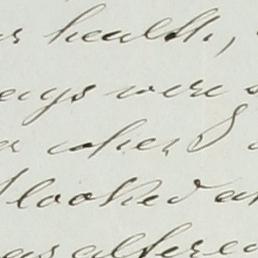 r health,
ays were
r when I
I looked a
as altered